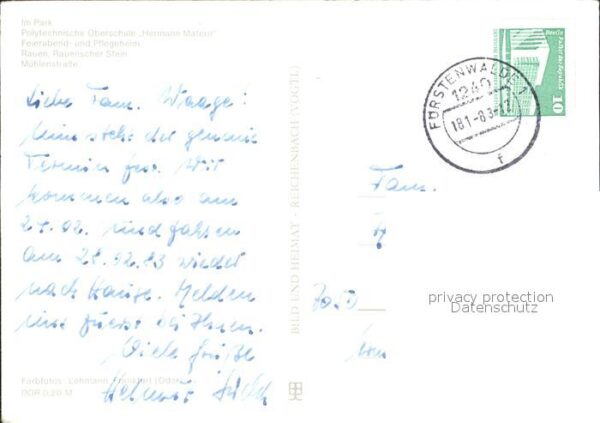 Im Park
Polytechnische Oberschule „Hermann Matern"
Feierabend- und Pflegeheim
Rauen, Rauenscher Stein
Mühlenstraße
Liebe Fam. Waage!
Nun steht der genaue
Termin fest. Wir
kommen also am
und fahren
am 28.02.83 wieder
nach Hause. Melden
uns zuerst bei Ihnen.
Viele Grüße
Helmut
Farbfotos: Lehmann, Frankfurt (Oder)
DDR 0,20 M
BILD UND HEIMAT · REICHENBACH (VOGTL)
FÜRSTENWALDE 1
1240
18.1.-8.3.-17
f
DDR
Berlin, Palast der Republik
10
Fam.
privacy protection
Datenschutz